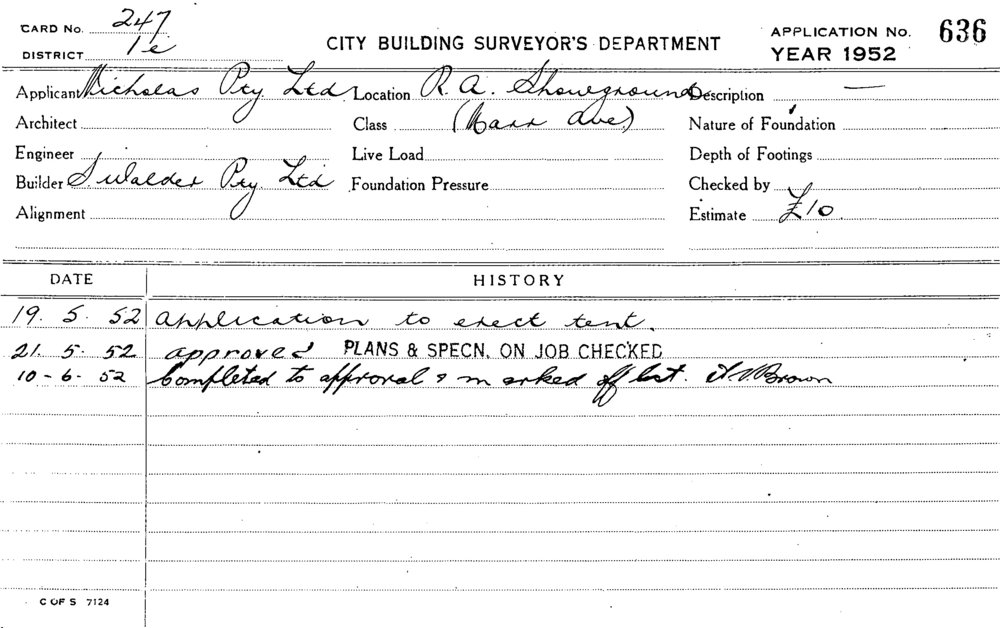 CARD No. 247
DISTRICT 1e
CITY BUILDING SURVEYOR'S DEPARTMENT
APPLICATION No. 636
YEAR 1952
Applicant Nicholas Pty Ltd Location R. A. Showground Description —
Architect Class (Marr Ave) Nature of Foundation
Engineer Live Load Depth of Footings
Builder S. Walder Pty Ltd Foundation Pressure Checked by
Alignment Estimate £10.
DATE HISTORY
19. 5. 52 application to erect tent.
21. 5. 52 approved PLANS & SPECN. ON JOB CHECKED
10-6. 52 Completed to approval & marked off list. Brown
C OF S 7124